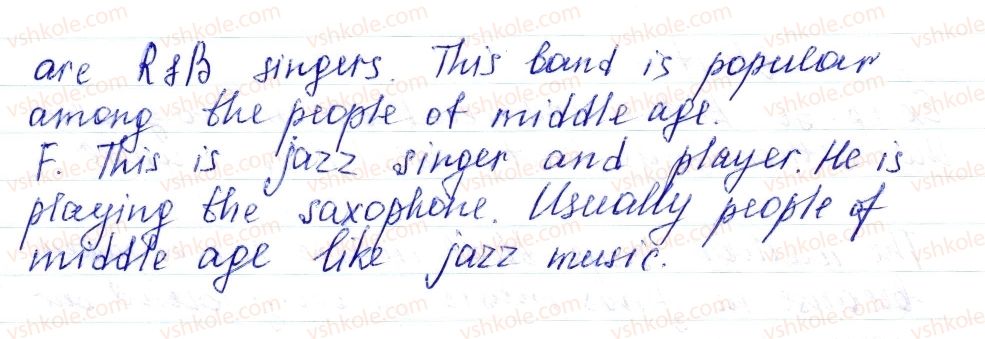 are R&B singers. This band is popular
among the people of middle age.
F. This is jazz singer and player. He is
playing the saxophone. Usually people of
middle age like jazz music.